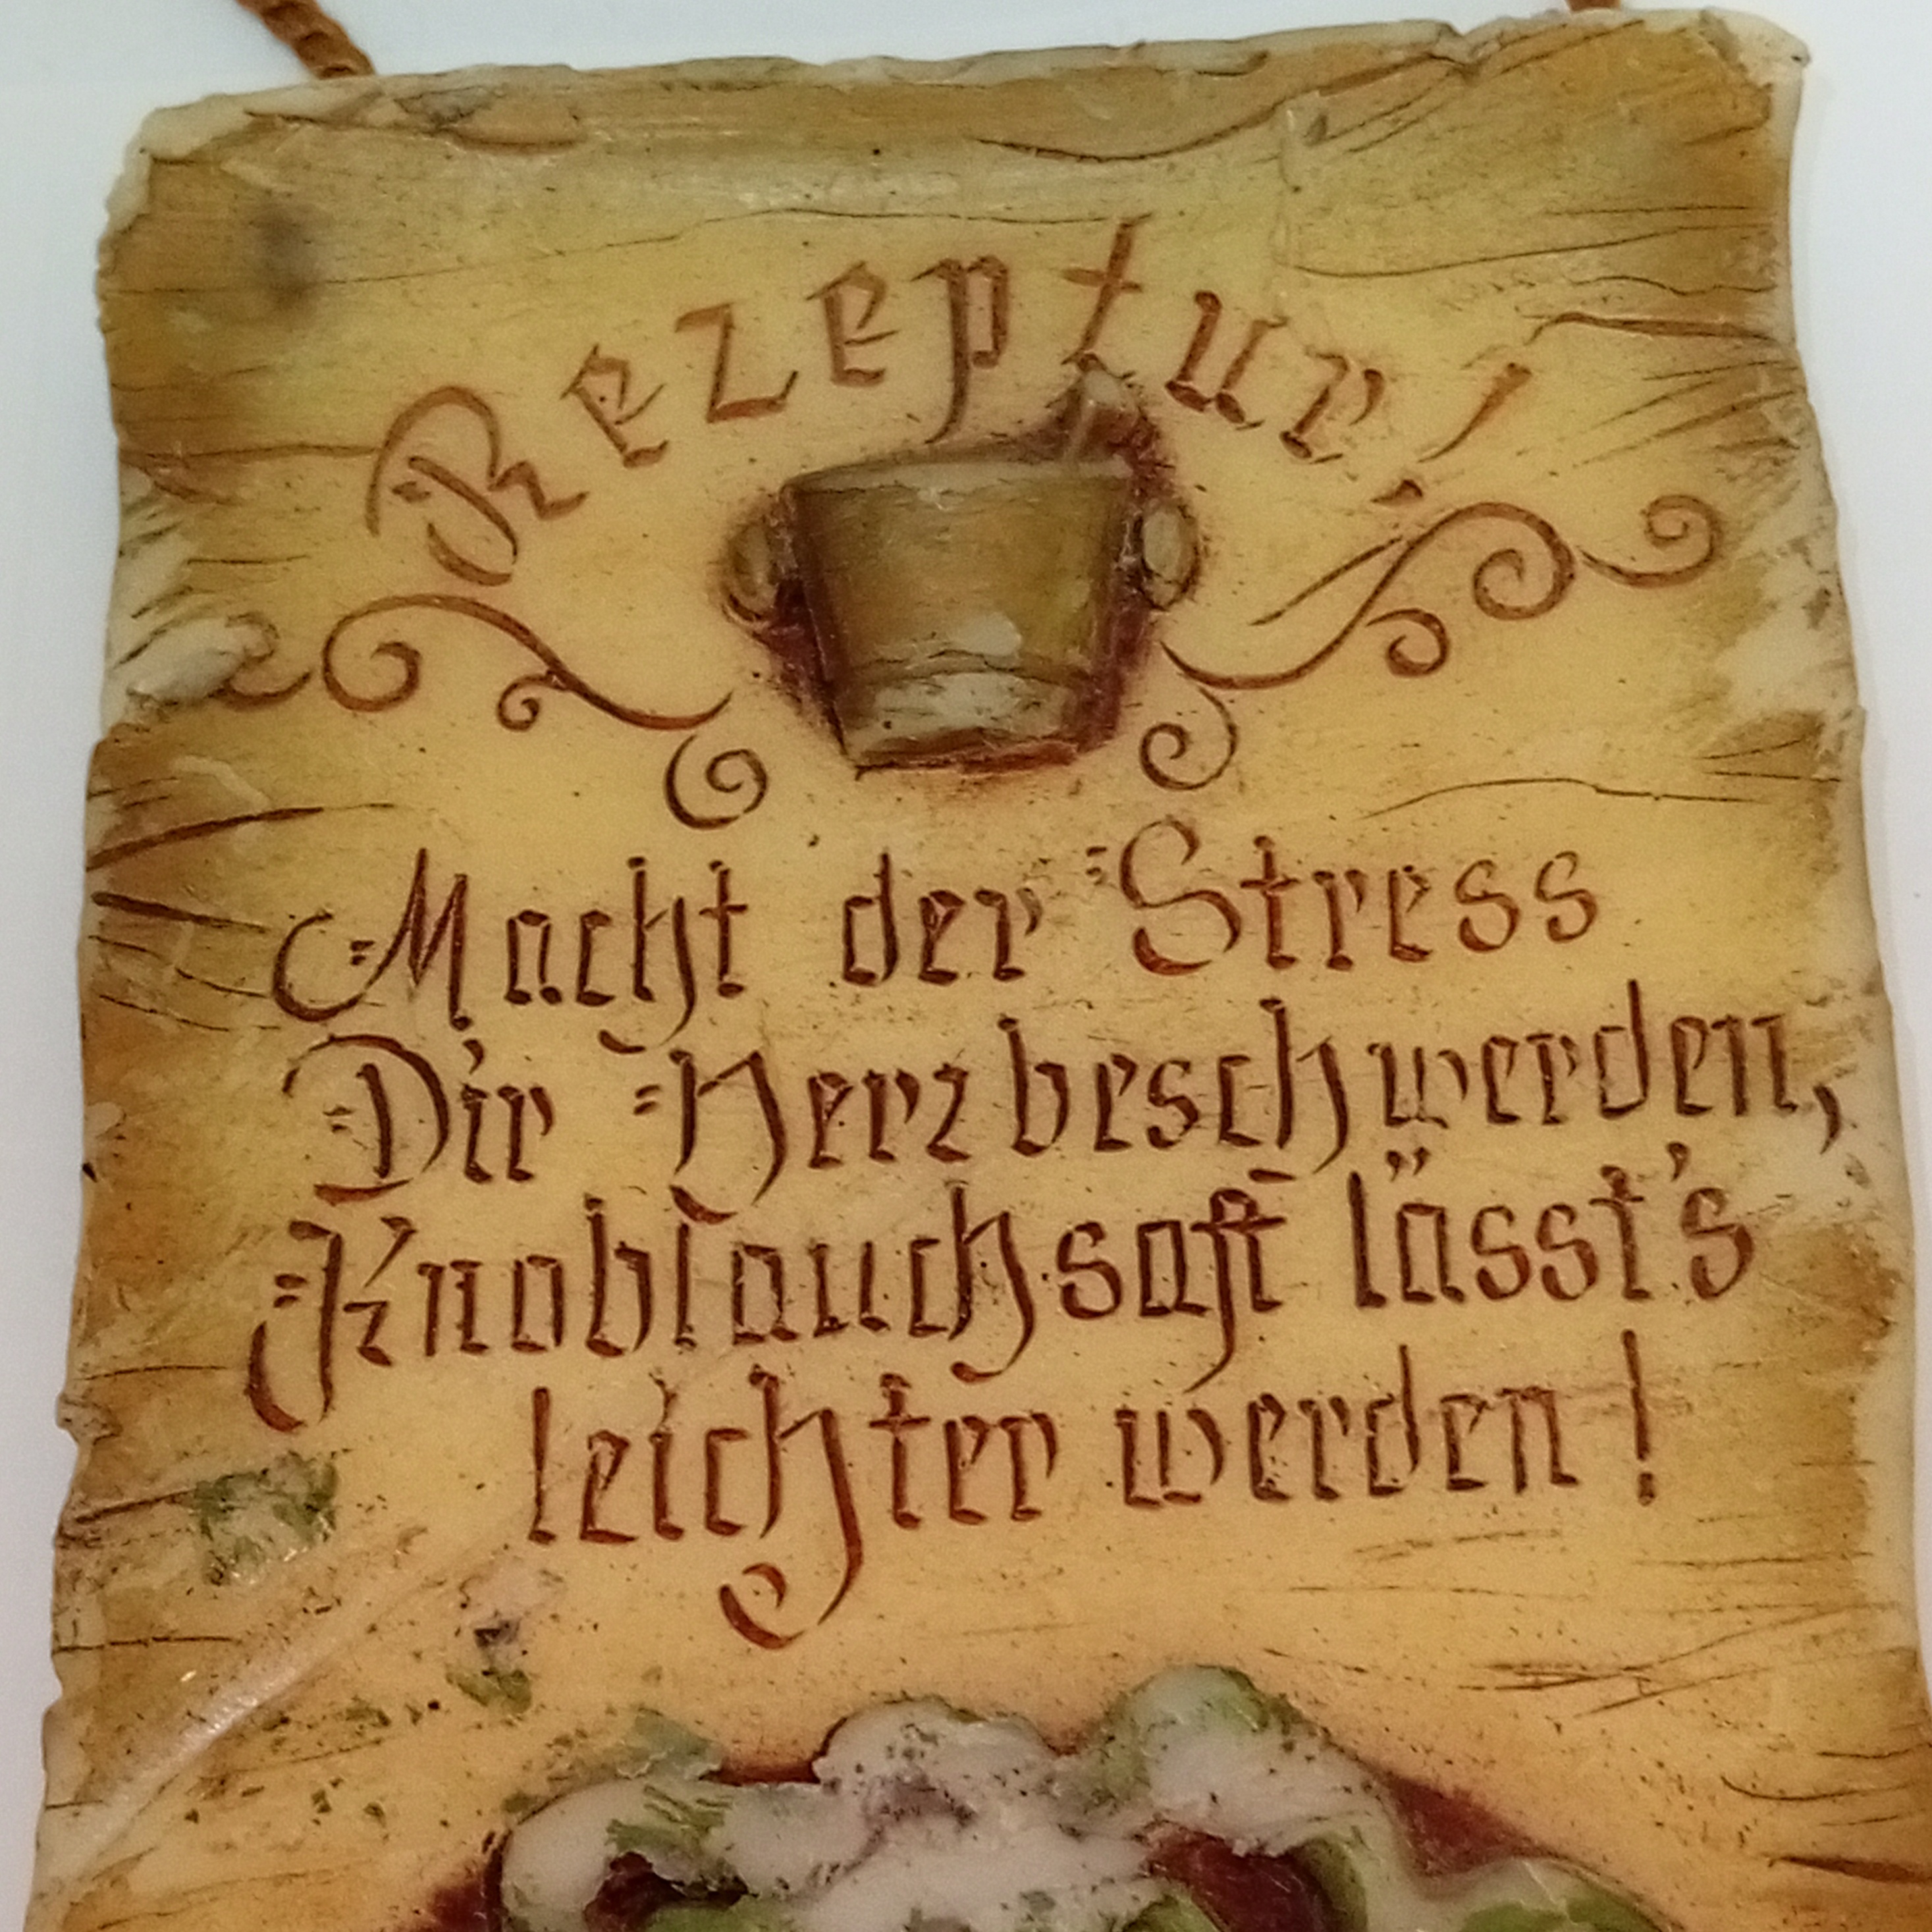 Rezeptur!
Macht der Stress
Dir Herzbeschwerden,
Knoblauchsaft lässt's
leichter werden!